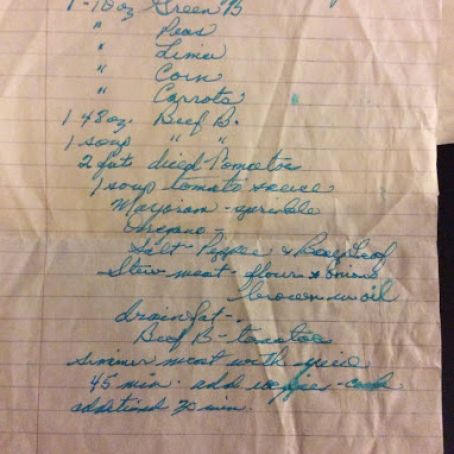 1-10oz Green B
" Peas
" Lima
" Corn
" Carrots
1 48oz. Beef B.
1 soup " "
2 diced Tomatoe
1 soup tomato sauce
Marjoram - sprinkle
Oregano -
Salt - Pepper & Bay Leaf
Stew meat - flour & onions
brown in oil
drain fat -
Beef B - tomatoe
simmer meat with
45 min. add veggies - cook
additional 30 min.